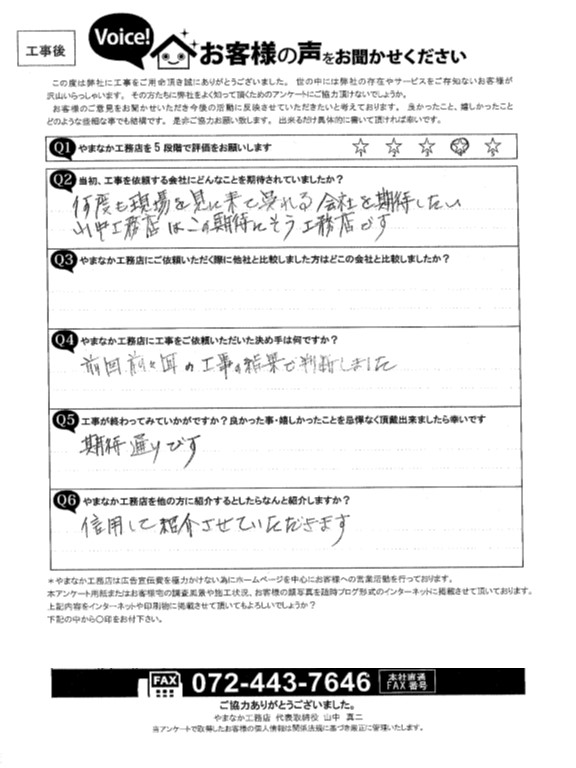 工事後
Voice!
お客様の声をお聞かせください
この度は弊社に工事をご用命頂き誠にありがとうございました。 世の中には弊社の存在やサービスをご存知ないお客様が
沢山いらっしゃいます。 その方たちに弊社をよく知って頂くためのアンケートにご協力頂けないでしょうか。
お客様のご意見をお聞かせいただき今後の活動に反映させていただきたいと考えております。 良かったこと、嬉しかったこと
どのような些細な事でも結構です。 是非ご協力お願い致します。 出来るだけ具体的に書いて頂ければ幸いです。
Q1 やまなか工務店を5段階で評価をお願いします
1 2 3 4 5
Q2 当初、工事を依頼する会社にどんなことを期待されていましたか?
何度も現場を見に来て呉れる会社を期待したい
山中工務店はこの期待にそう工務店です
Q3 やまなか工務店にご依頼いただく際に他社と比較しました方はどこの会社と比較しましたか?
Q4 やまなか工務店に工事をご依頼いただいた決め手は何ですか?
前回、前々回の工事の結果で判断しました
Q5 工事が終わってみていかがですか?良かった事・嬉しかったことを忌憚なく頂戴出来ましたら幸いです
期待通りです
Q6 やまなか工務店を他の方に紹介するとしたらなんと紹介しますか?
信用して紹介させていただきます
*やまなか工務店は広告宣伝費を極力かけない為にホームページを中心にお客様への営業活動を行っております。
本アンケート用紙またはお客様宅の調査風景や施工状況、お客様の顔写真を随時ブログ形式のインターネットに掲載させて頂いております。
上記内容をインターネットや印刷物に掲載させて頂いてもよろしいでしょうか?
下記の中から〇印をお付下さい。
FAX 072-443-7646 本社直通
FAX番号
ご協力ありがとうございました。
やまなか工務店 代表取締役 山中 真二
当アンケートで取得したお客様の個人情報は関係法規に基づき厳正に管理いたします。